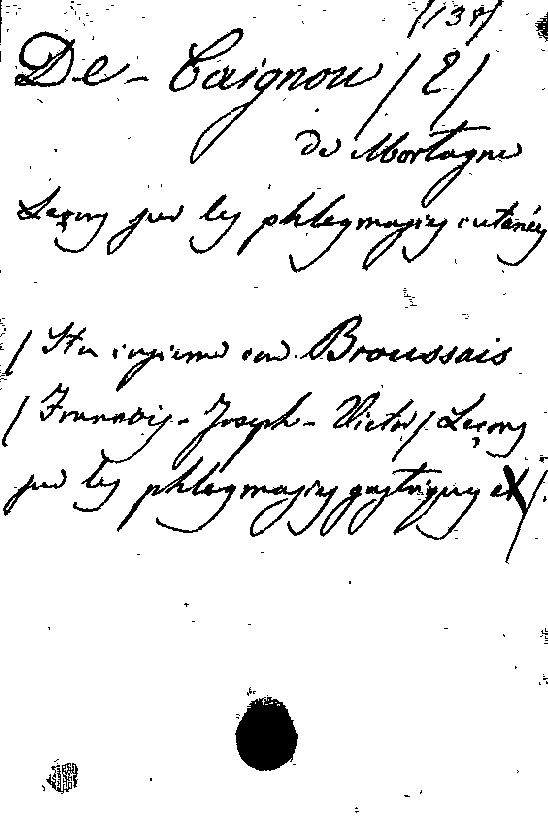 /137/
De-Caignou /E/
de Mortagne
Leçons sur les phlegmasies cutanées
/Sta. insieme con Broussais
/François-Joseph-Victor/ Leçons
sur les phlegmasies gastriques